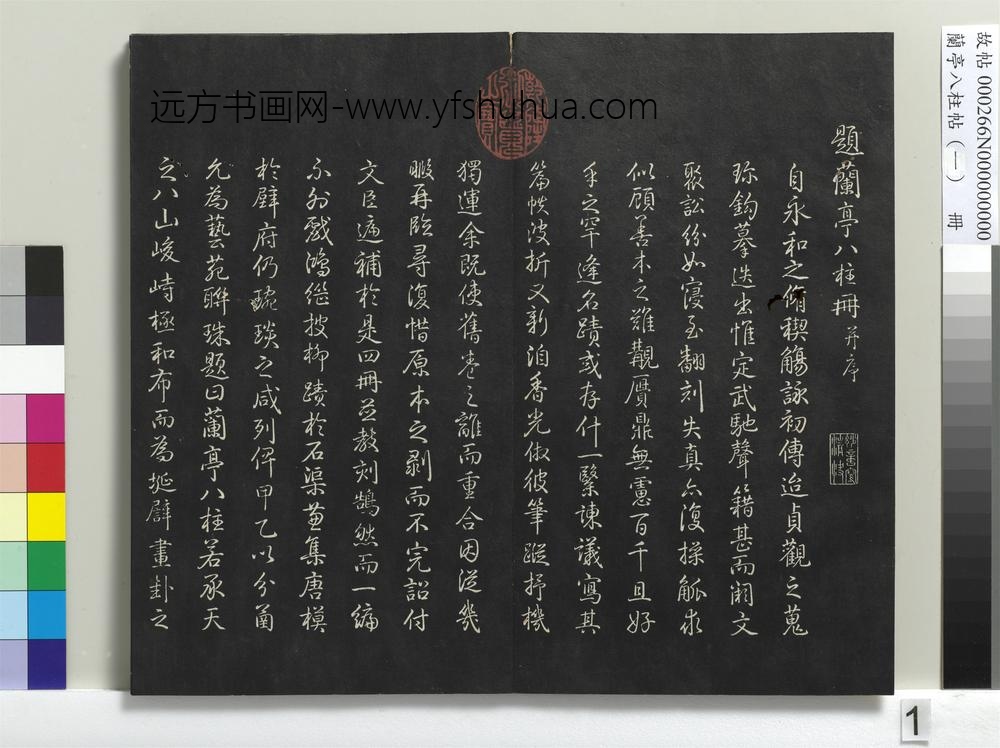 題蘭亭八柱冊并序
自永和之脩稧觴詠初傳迨貞觀之蒐
珎鈎摹迭出惟定武馳聲籍甚而閧文
聚訟紛如寖至翻刻失真亦復操觚求
似顧善本之難觀贋鼎無慮百千且好
手之罕逢名蹟或存什一繄諫議寫其
篇帙波折又新洎香光倣彼筆蹤抒機
獨運余既使舊卷之離而重合因從幾
暇再臨尋復惜原本之剥而不完詔付
文臣遞補於是四冊並教刻鵠然而一編
不外戲鴻繼披柳蹟於石渠蓋集唐模
於壁府仍琬琰之咸列俾甲乙以分函
允為藝苑聯珠題曰蘭亭八柱若承天
之八山峻峙極和布而為埏闢畫卦之
远方书画网-www.yfshuhua.com
故帖 000266N000000000
蘭亭八柱帖（一） 冊
1